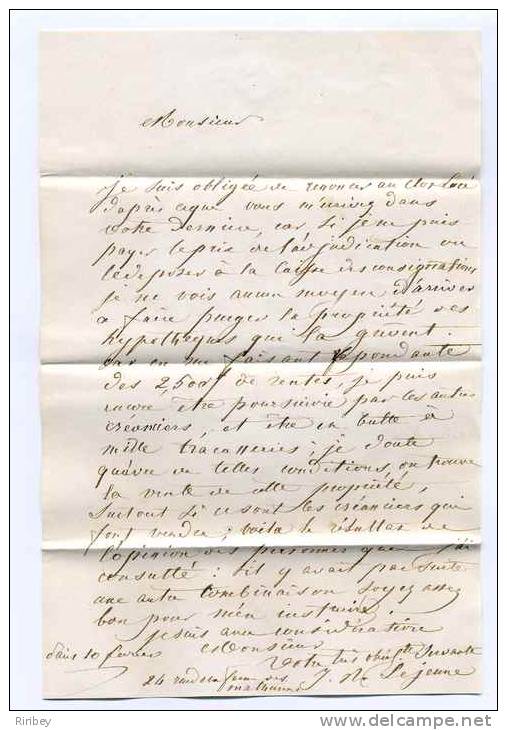 Monsieur
je suis obligée de renoncer au Clos Lucé
d'après ce que vous m'écrivez dans
votre Dernière, car, si je ne puis
payer le prix de l'adjudication ou
le déposer à la Caisse des consignations
je ne vois aucun moyen d'arriver
a faire purger la propriété des
hypotheques qui la grevent.
car en me faisant répondante
des 2,500f de rentes, je puis
encore être poursuivie par les autres
créanciers, et être en butte à
mille tracasseries; je doute
qu'avec de telles conditions, on trouve
la vente de cette propriété,
surtout si ce sont les créanciers qui
font vendre; voila le résultat de
l'opinion des personnes que j'ai
consulté: s'il y avait par suite
une autre combinaison soyez assez
bon pour m'en instruire.
Je suis avec considération
Monsieur
Votre très obéiste Servante
J. N. Lejeune
Paris 10 fevrier
24 rue de la ferme des
mathurins
Riribey
www.delcampe.net